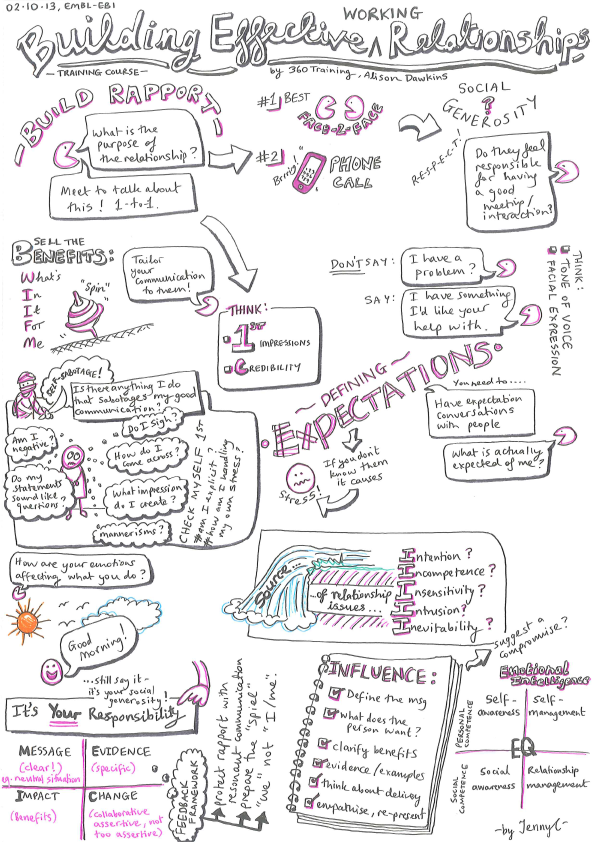 02.10.13, EMBL-EBI
Building Effective WORKING Relationships
— TRAINING COURSE —
by 360 Training, Alison Dawkins
BUILD RAPPORT
What is the
purpose of
the relationship?
Meet to talk about
this! 1-to-1.
#1 BEST
FACE-2-FACE
#2
Brrring!
PHONE
CALL
SOCIAL
?
GENEROSITY
R.E.S.P.E.C.T.!
Do they feel
responsible
for having
a good
meeting/
interaction?
SELL THE
BENEFITS:
What's
In
It
For
Me
"Spin"
Tailor
your
communication
to them!
THINK:
1ST
IMPRESSIONS
CREDIBILITY
DON'T SAY:
I have a
problem?
SAY:
I have something
I'd like your
help with.
THINK:
TONE OF VOICE
FACIAL EXPRESSION
SELF-SABOTAGE!
Is there anything I do
that sabotages my good
communication?
Am I
negative?
Do I sigh?
How do I
come across?
Do my
statements
sound like
questions
What impression
do I create?
mannerisms?
CHECK MYSELF 1st
#am I explicit?
#how am I handling
my own stress?
DEFINING
EXPECTATIONS.
You need to....
Have expectation
conversations
with people
What is actually
expected of me?
If you don't
know them
it causes
Stress!
How are your emotions
affecting what you do?
Good
Morning!
...still say it -
it's your social
generosity!
It's Your Responsibility
Source...
...of relationship
issues...
Intention?
Incompetence?
Insensitivity?
Intrusion?
Inevitability?
MESSAGE
(clear!)
eg. neutral situation
EVIDENCE
(specific)
IMPACT
(benefits)
CHANGE
(collaborative
assertive, not
too assertive)
FEEDBACK
FRAMEWORK
protect rapport with
resonant communication
prepare the "spiel"
"we" not "I/me"
INFLUENCE:
Define the msg
What does the
person want?
clarify benefits
evidence/examples
think about delivery
empathise, re-present
suggest a
compromise?
Emotional
Intelligence
PERSONAL
COMPETENCE
SOCIAL
COMPETENCE
Self-
awareness
Self-
management
EQ
Social
awareness
Relationship
management
- by JennyC -